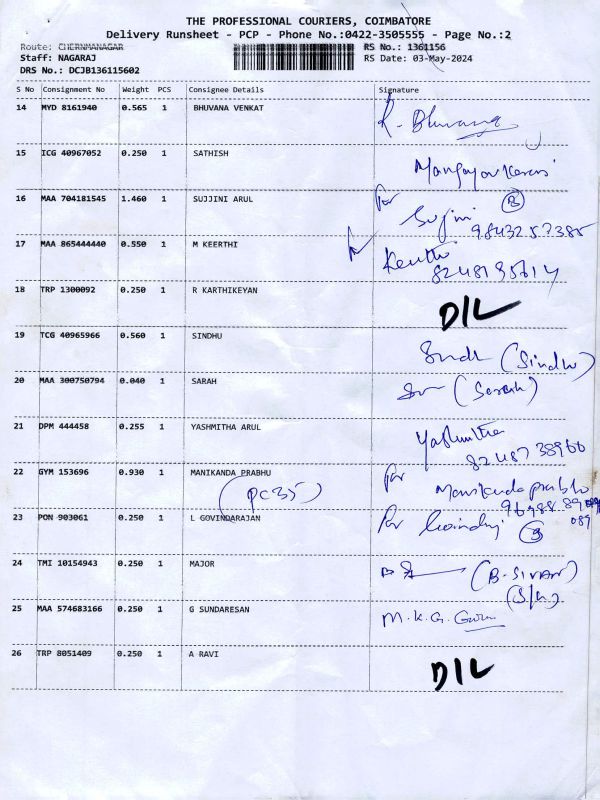 THE PROFESSIONAL COURIERS, COIMBATORE
Delivery Runsheet - PCP - Phone No.:0422-3505555 - Page No.:2
Route: CHERNMANAGAR RS No.: 1361156
Staff: NAGARAJ RS Date: 03-May-2024
DRS No.: DCJB136115602
S No Consignment No Weight PCS Consignee Details Signature
14 MYD 8161940 0.565 1 BHUVANA VENKAT R. Bhuvana
15 ICG 40967052 0.250 1 SATHISH
16 MAA 704181545 1.460 1 SUJJINI ARUL For Sujini
9843257385
17 MAA 865444440 0.550 1 M KEERTHI Keerthi
18 TRP 1300092 0.250 1 R KARTHIKEYAN D/L
19 TCG 40965966 0.560 1 SINDHU (Sindhu)
20 MAA 300750794 0.040 1 SARAH (Sarah)
21 DPM 444458 0.255 1 YASHMITHA ARUL Yashmitha
8248738960
22 GYM 153696 0.930 1 MANIKANDA PRABHU For Manikanda prabhu
(PC35)
23 PON 903061 0.250 1 L GOVINDARAJAN For
24 TMI 10154943 0.250 1 MAJOR (B-SIVAN)
(S/h)
25 MAA 574683166 0.250 1 G SUNDARESAN M.K.G.
26 TRP 8051409 0.250 1 A RAVI D/L